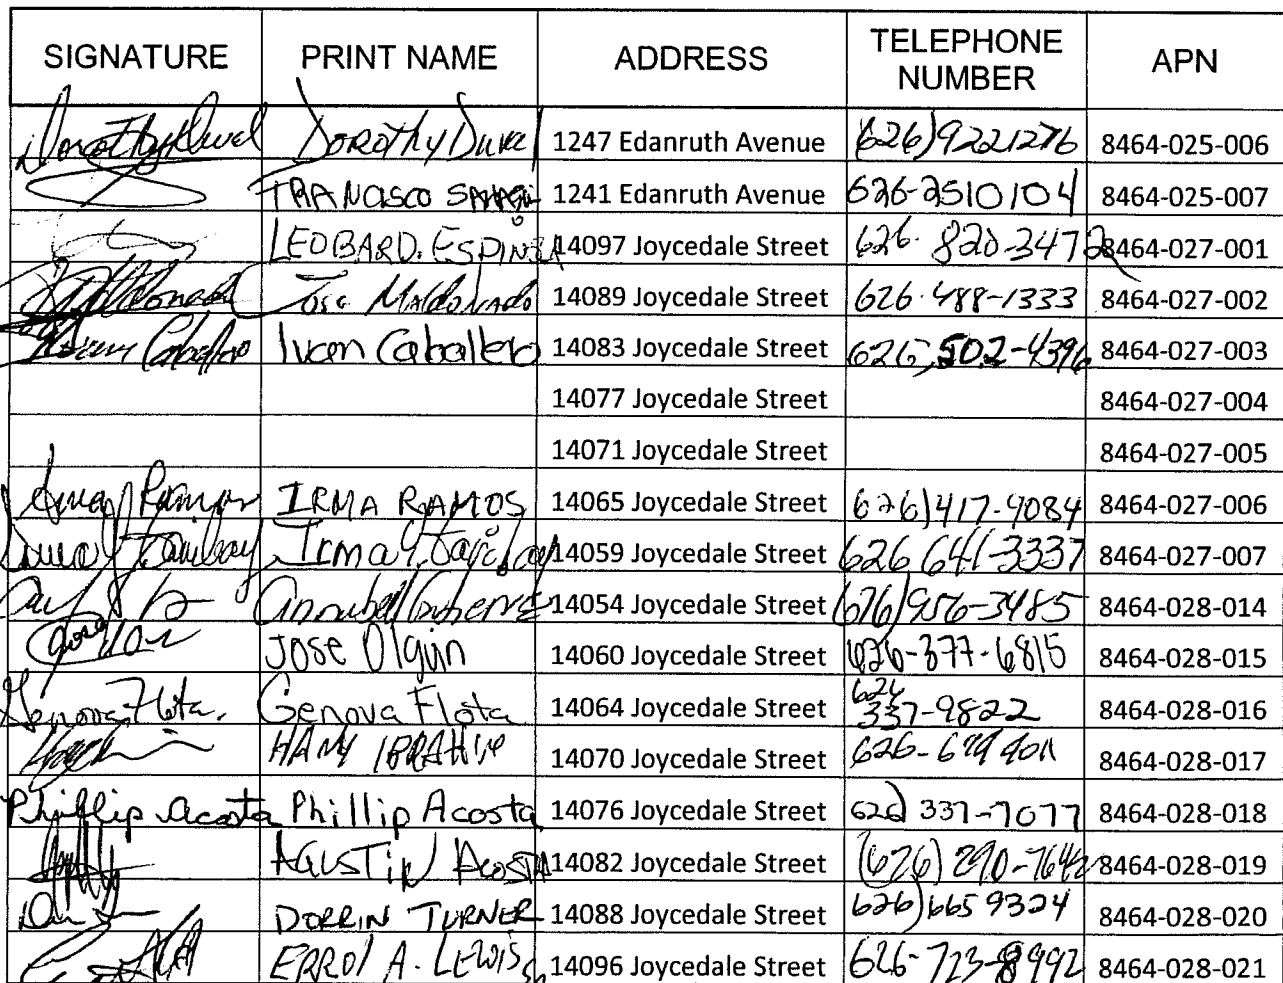 SIGNATURE PRINT NAME ADDRESS TELEPHONE NUMBER APN
Dorothy Duvel Dorothy Duvel 1247 Edanruth Avenue (626)9221276 8464-025-006
FRANCISCO 1241 Edanruth Avenue 626-2510104 8464-025-007
LEOBARD. ESPINZA 14097 Joycedale Street 626. 820-3472 8464-027-001
Maldonado Jose Maldonado 14089 Joycedale Street 626-488-1333 8464-027-002
Ivan Caballero 14083 Joycedale Street 626,502-4396 8464-027-003
14077 Joycedale Street 8464-027-004
14071 Joycedale Street 8464-027-005
Irma Ramos IRMA RAMOS 14065 Joycedale Street 626)417-9084 8464-027-006
Irma Y. 14059 Joycedale Street 626 641-3337 8464-027-007
14054 Joycedale Street (626)956-3485 8464-028-014
Jose Olguin 14060 Joycedale Street 626-377-6815 8464-028-015
Genova Flota. Genova Flota 14064 Joycedale Street 626 337-9822 8464-028-016
HANY IBRAHIM 14070 Joycedale Street 8464-028-017
Phillip Acosta Phillip Acosta 14076 Joycedale Street 626) 337-7077 8464-028-018
AGUSTIN ACOSTA 14082 Joycedale Street (626) 290-7642 8464-028-019
DORRIN TURNER 14088 Joycedale Street 626)665 9324 8464-028-020
ERROl A. LEWIS 14096 Joycedale Street 626-723-8992 8464-028-021